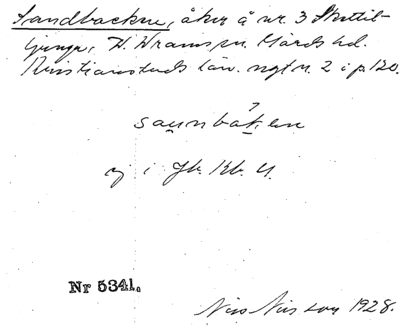 Sandbacken, åker å nr. 3 Skottil-
ljunga, N. Wrams sn. Gärds hd.
Kristianstads län. ngt n. 2 i p 120.
saunbakən
ej i Jb. Kb. U.
Nr 5341.
Nils Nilsson 1928.